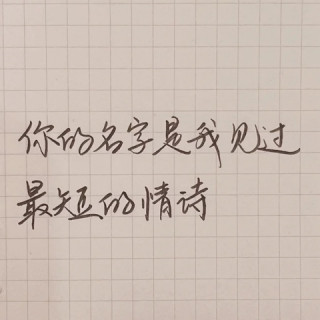 你的名字是我见过
最短的情诗